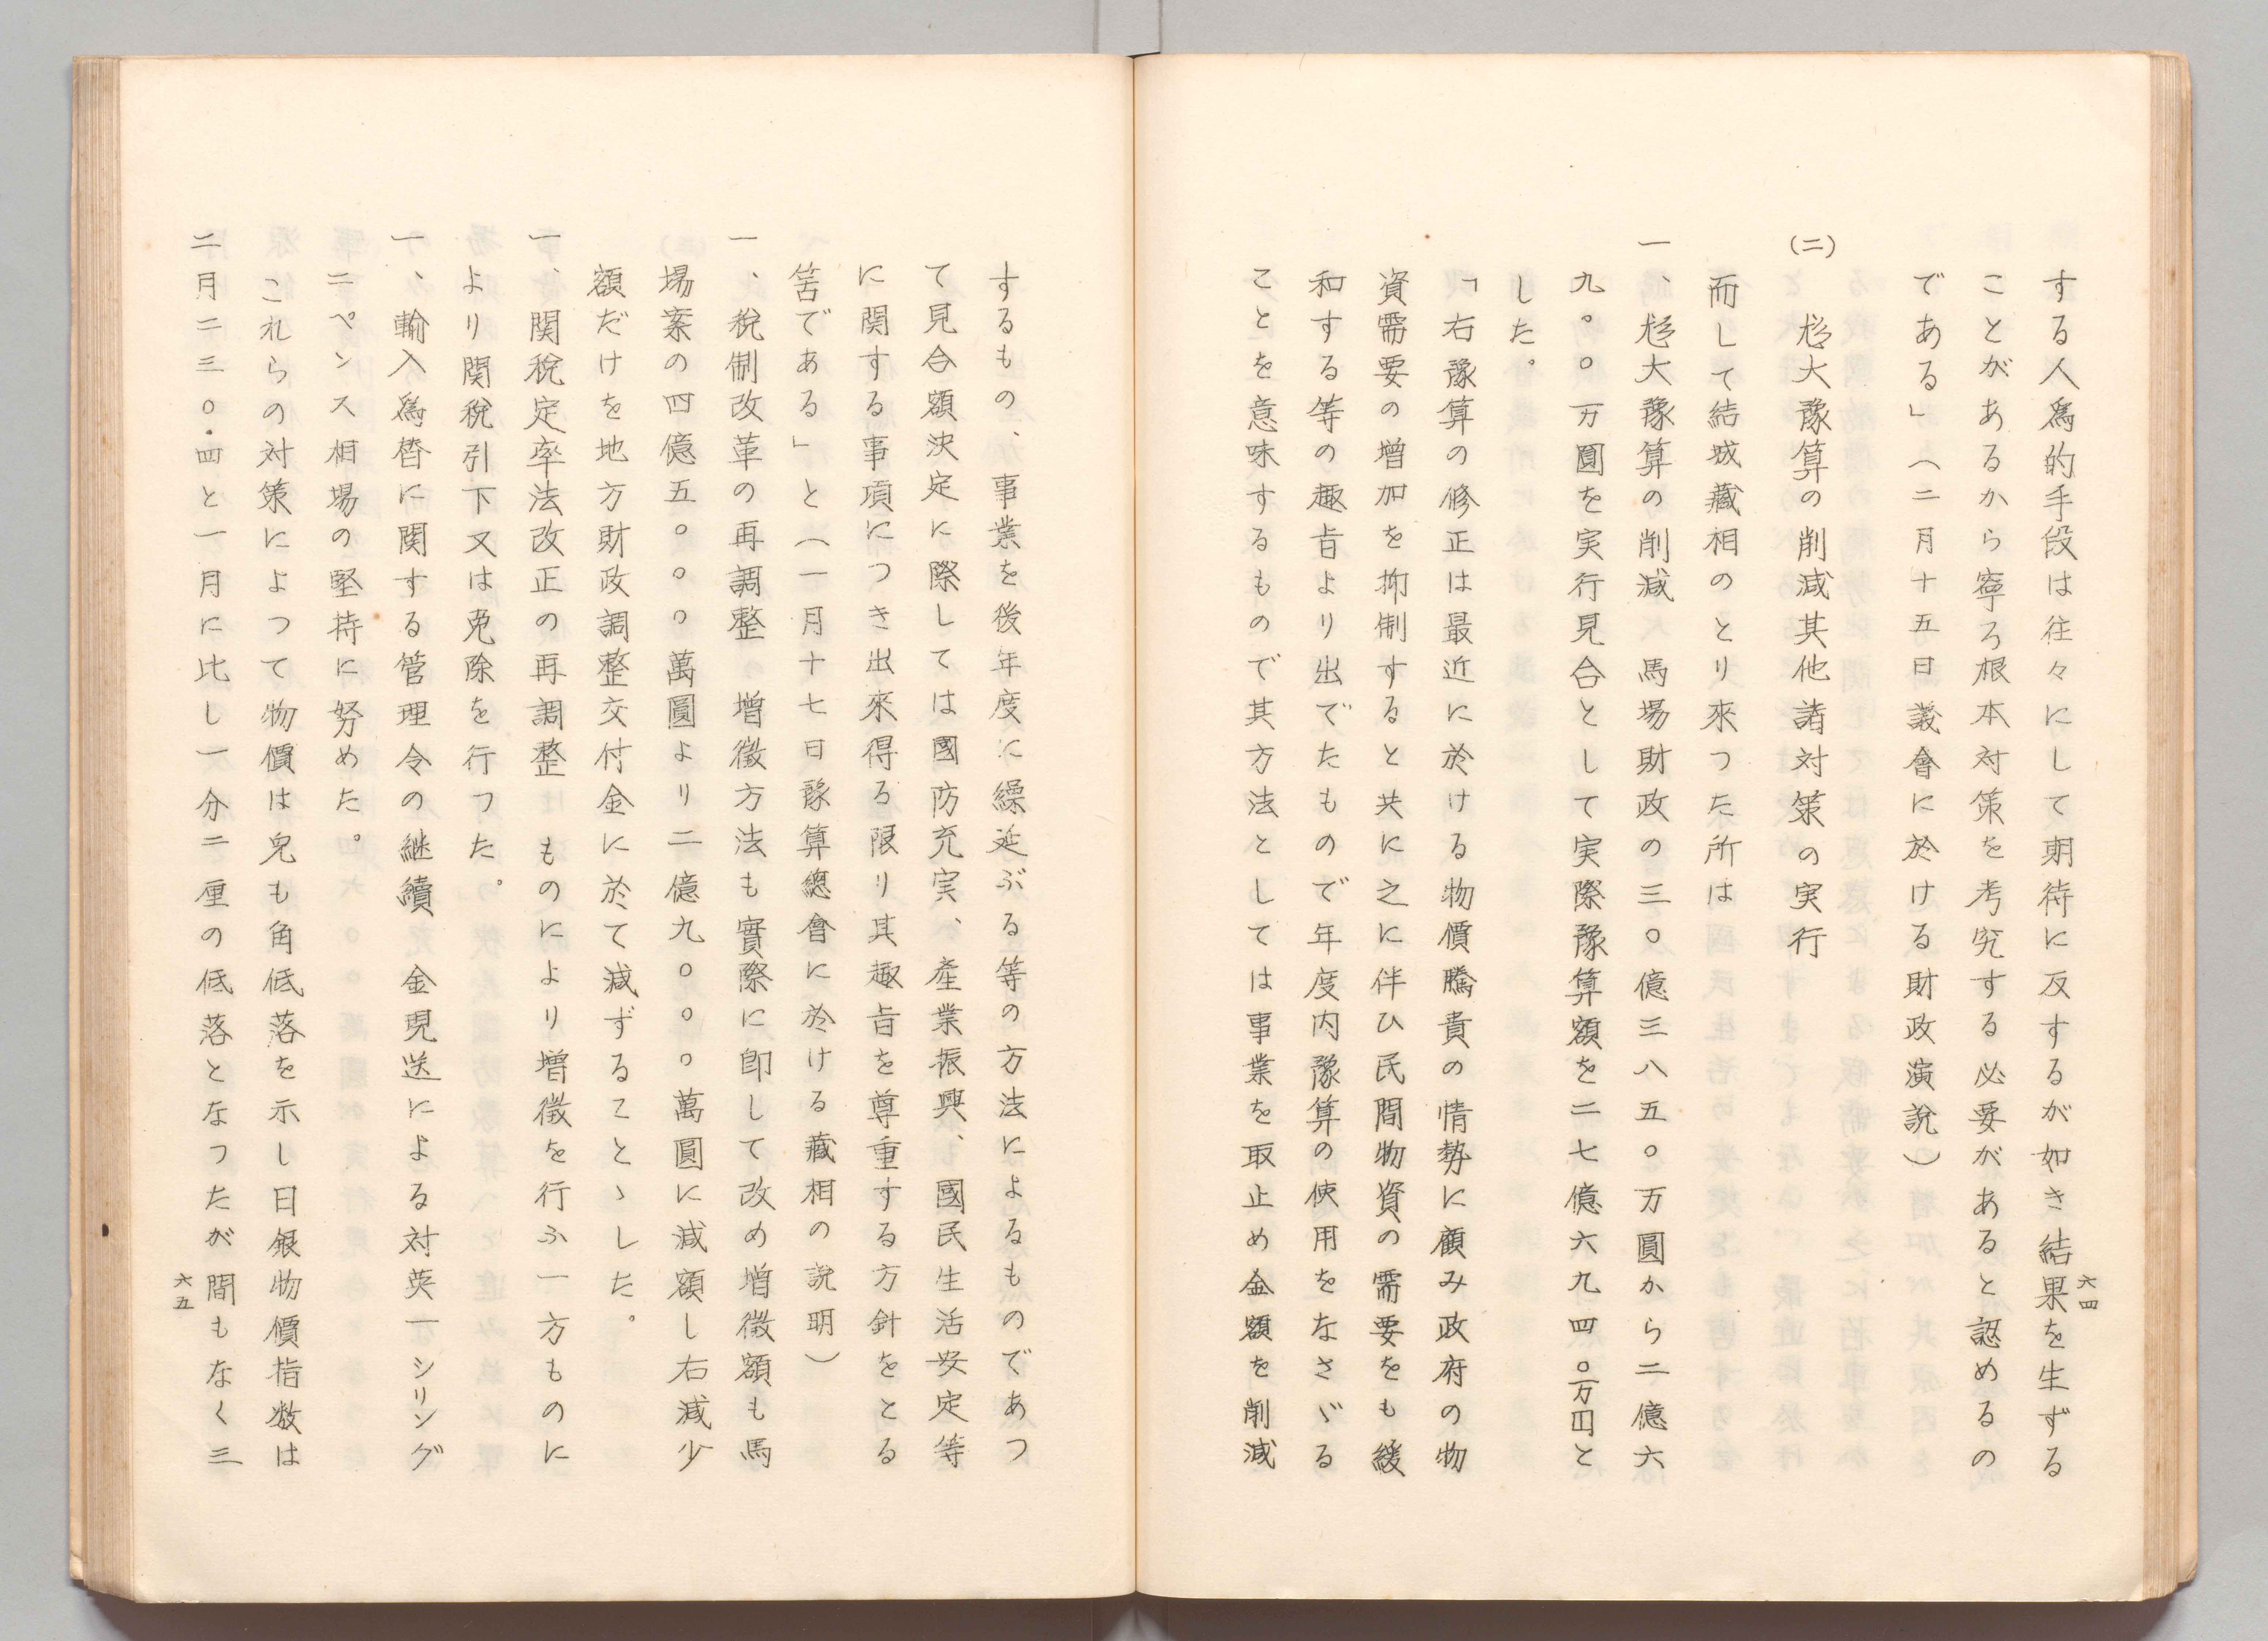 六四
する人爲的手段は往々にして期待に反するが如き結果を生ずる
ことがあるから寧ろ根本対策を考究する必要があると認めるの
である」（二月十五日議會に於ける財政演説）
(二)　尨大豫算の削減其他諸対策の実行
而して結城藏相のとり來つた所は
一、尨大豫算の削減　馬場財政の三〇億三八五〇万圓から二億六
九〇〇万圓を実行見合として実際豫算額を二七億六九四〇万円と
した。
「右豫算の修正は最近に於ける物價騰貴の情勢に顧み政府の物
資需要の増加を抑制すると共に之に伴ひ民間物資の需要をも緩
和する等の趣旨より出でたもので年度内豫算の使用をなさゞる
ことを意味するもので其方法としては事業を取止め金額を削減
するもの、事業を後年度に繰延ぶる等の方法によるものであつ
て見合額決定に際しては國防充実、産業振興、國民生活安定等
に関する事項につき出來得る限り其趣旨を尊重する方針をとる
筈である」と（一月十七日豫算總會に於ける藏相の説明）
一、税制改革の再調整　増徴方法も實際に卽して改め増徴額も馬
場案の四億五〇〇〇萬圓より二億九〇〇〇萬圓に減額し右減少
額だけを地方財政調整交付金に於て減ずることゝした。
一、関税定率法改正の再調整　ものにより増徴を行ふ一方ものに
より関税引下又は免除を行つた。
一、輸入爲替に関する管理令の継續　金現送による対英一シリング
二ペンス相場の堅持に努めた。
これらの対策によつて物價は兎も角低落を示し日銀物價指数は
二月二三〇・四と一月に比し一分二厘の低落となつたが間もなく三
六五